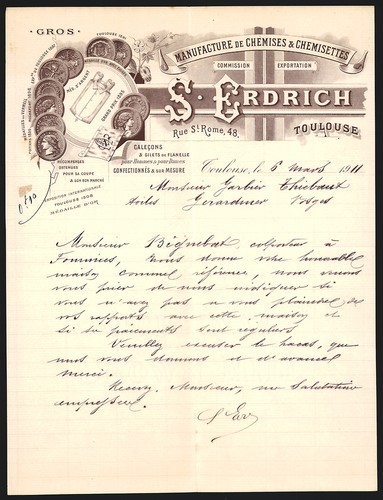 GROS
TOULOUSE 1881
MANUFACTURE DE CHEMISES & CHEMISETTES
COMMISSION EXPORTATION
S. ERDRICH
Rue St Rome, 48,
TOULOUSE
CALEÇONS
& GILETS DE FLANELLE
pour Hommes & pour Dames
CONFECTIONNÉS & SUR MESURE
RÉCOMPENSES
OBTENUES
POUR SA COUPE
& SON BON MARCHÉ
EXPOSITION INTERNATIONALE
TOULOUSE 1908
MÉDAILLE D'OR
Toulouse, le 6 mars 1911
Monsieur Garbier Thiebaut
Gerardmer Vosges
Monsieur colporteur à
nous donne votre honorable
maison comme référence, nous venons
vous prier de nous indiquer si
vous n'avez pas a vous plaindre de
vos rapports avec cette maison et
si ses paiements sont reguliers
Veuillez excuser le tracas, que
nous vous donnons et d'avance
merci.
Recevez Monsieur, nos Salutations
empressées.